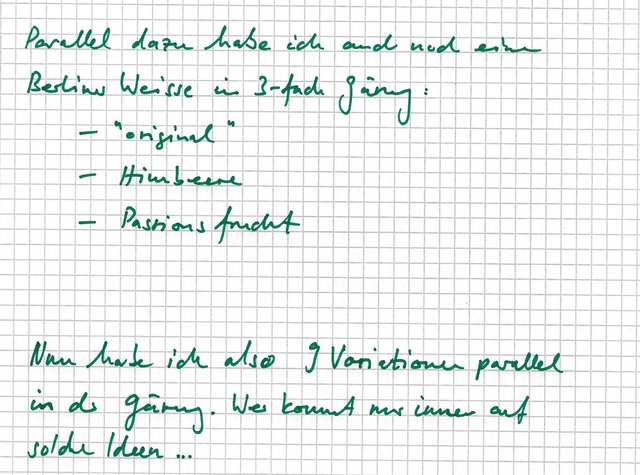 Parallel dazu habe ich auch noch eine
Berliner Weisse in 3-fach Gärung:
- "original"
- Himbeere
- Passionsfrucht
Nun habe ich also 9 Variationen parallel
in der Gärung. Wer kommt nur immer auf
solche Ideen...